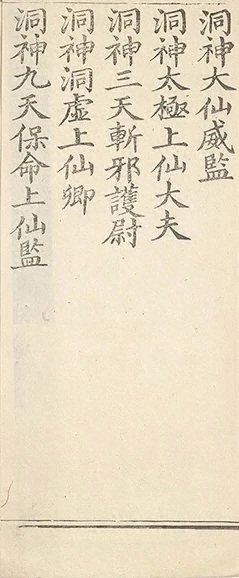 洞神大仙威監
洞神太極上仙大夫
洞神三天斬邪護尉
洞神洞虛上仙卿
洞神九天保命上仙監